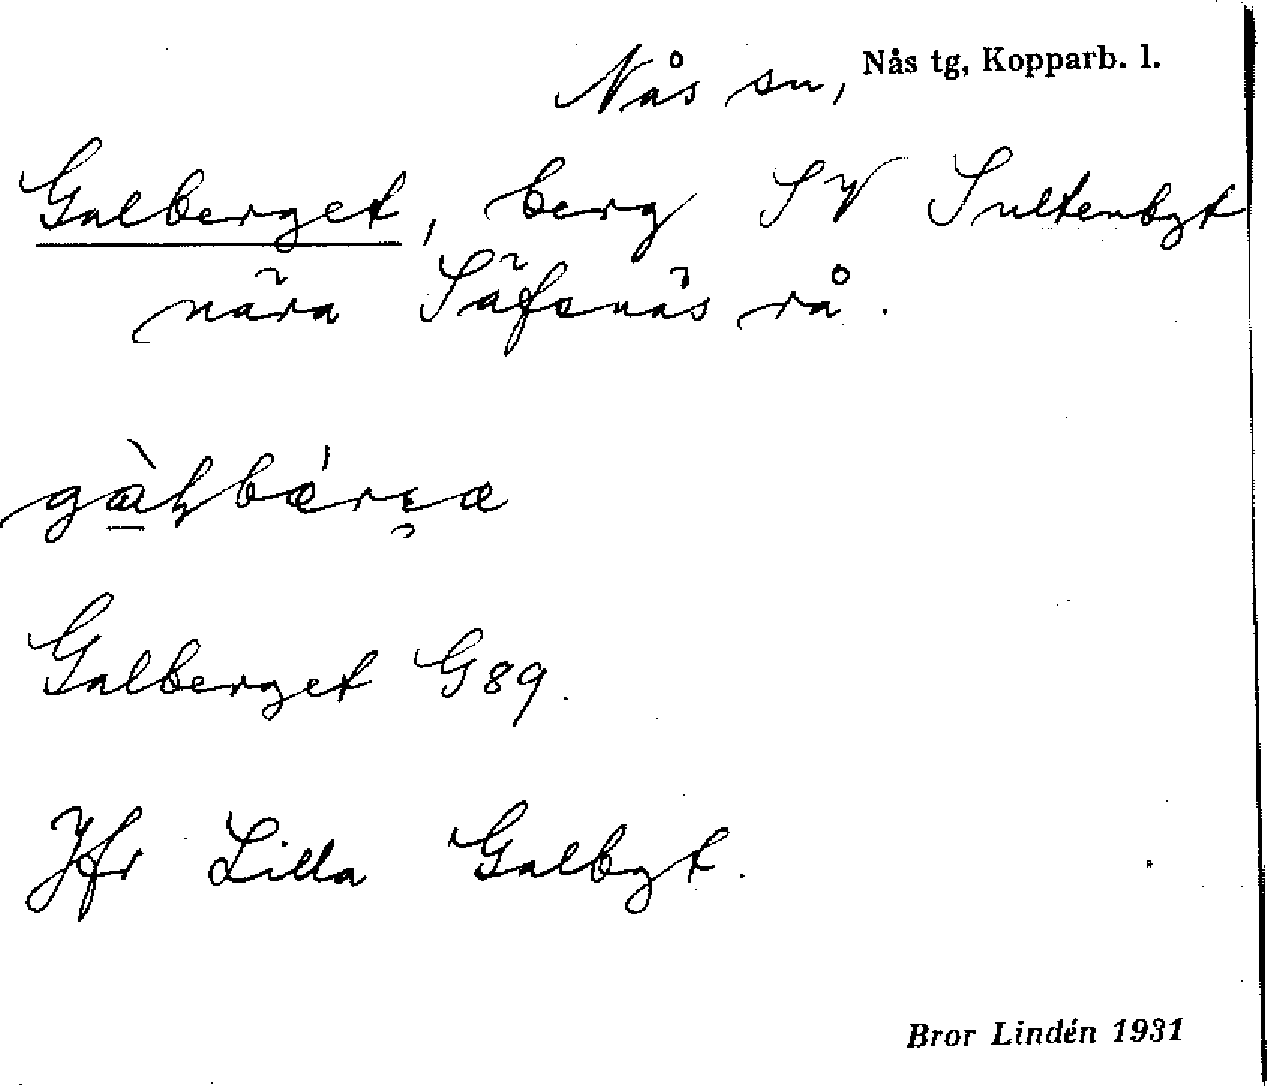 Nås sn, Nås tg, Kopparb. l.
Galberget, berg SV Sultenbgt
nära Säfsnäs rå.
Galberget G 89.
Jfr Lilla Galbgt.
Bror Lindén 1931